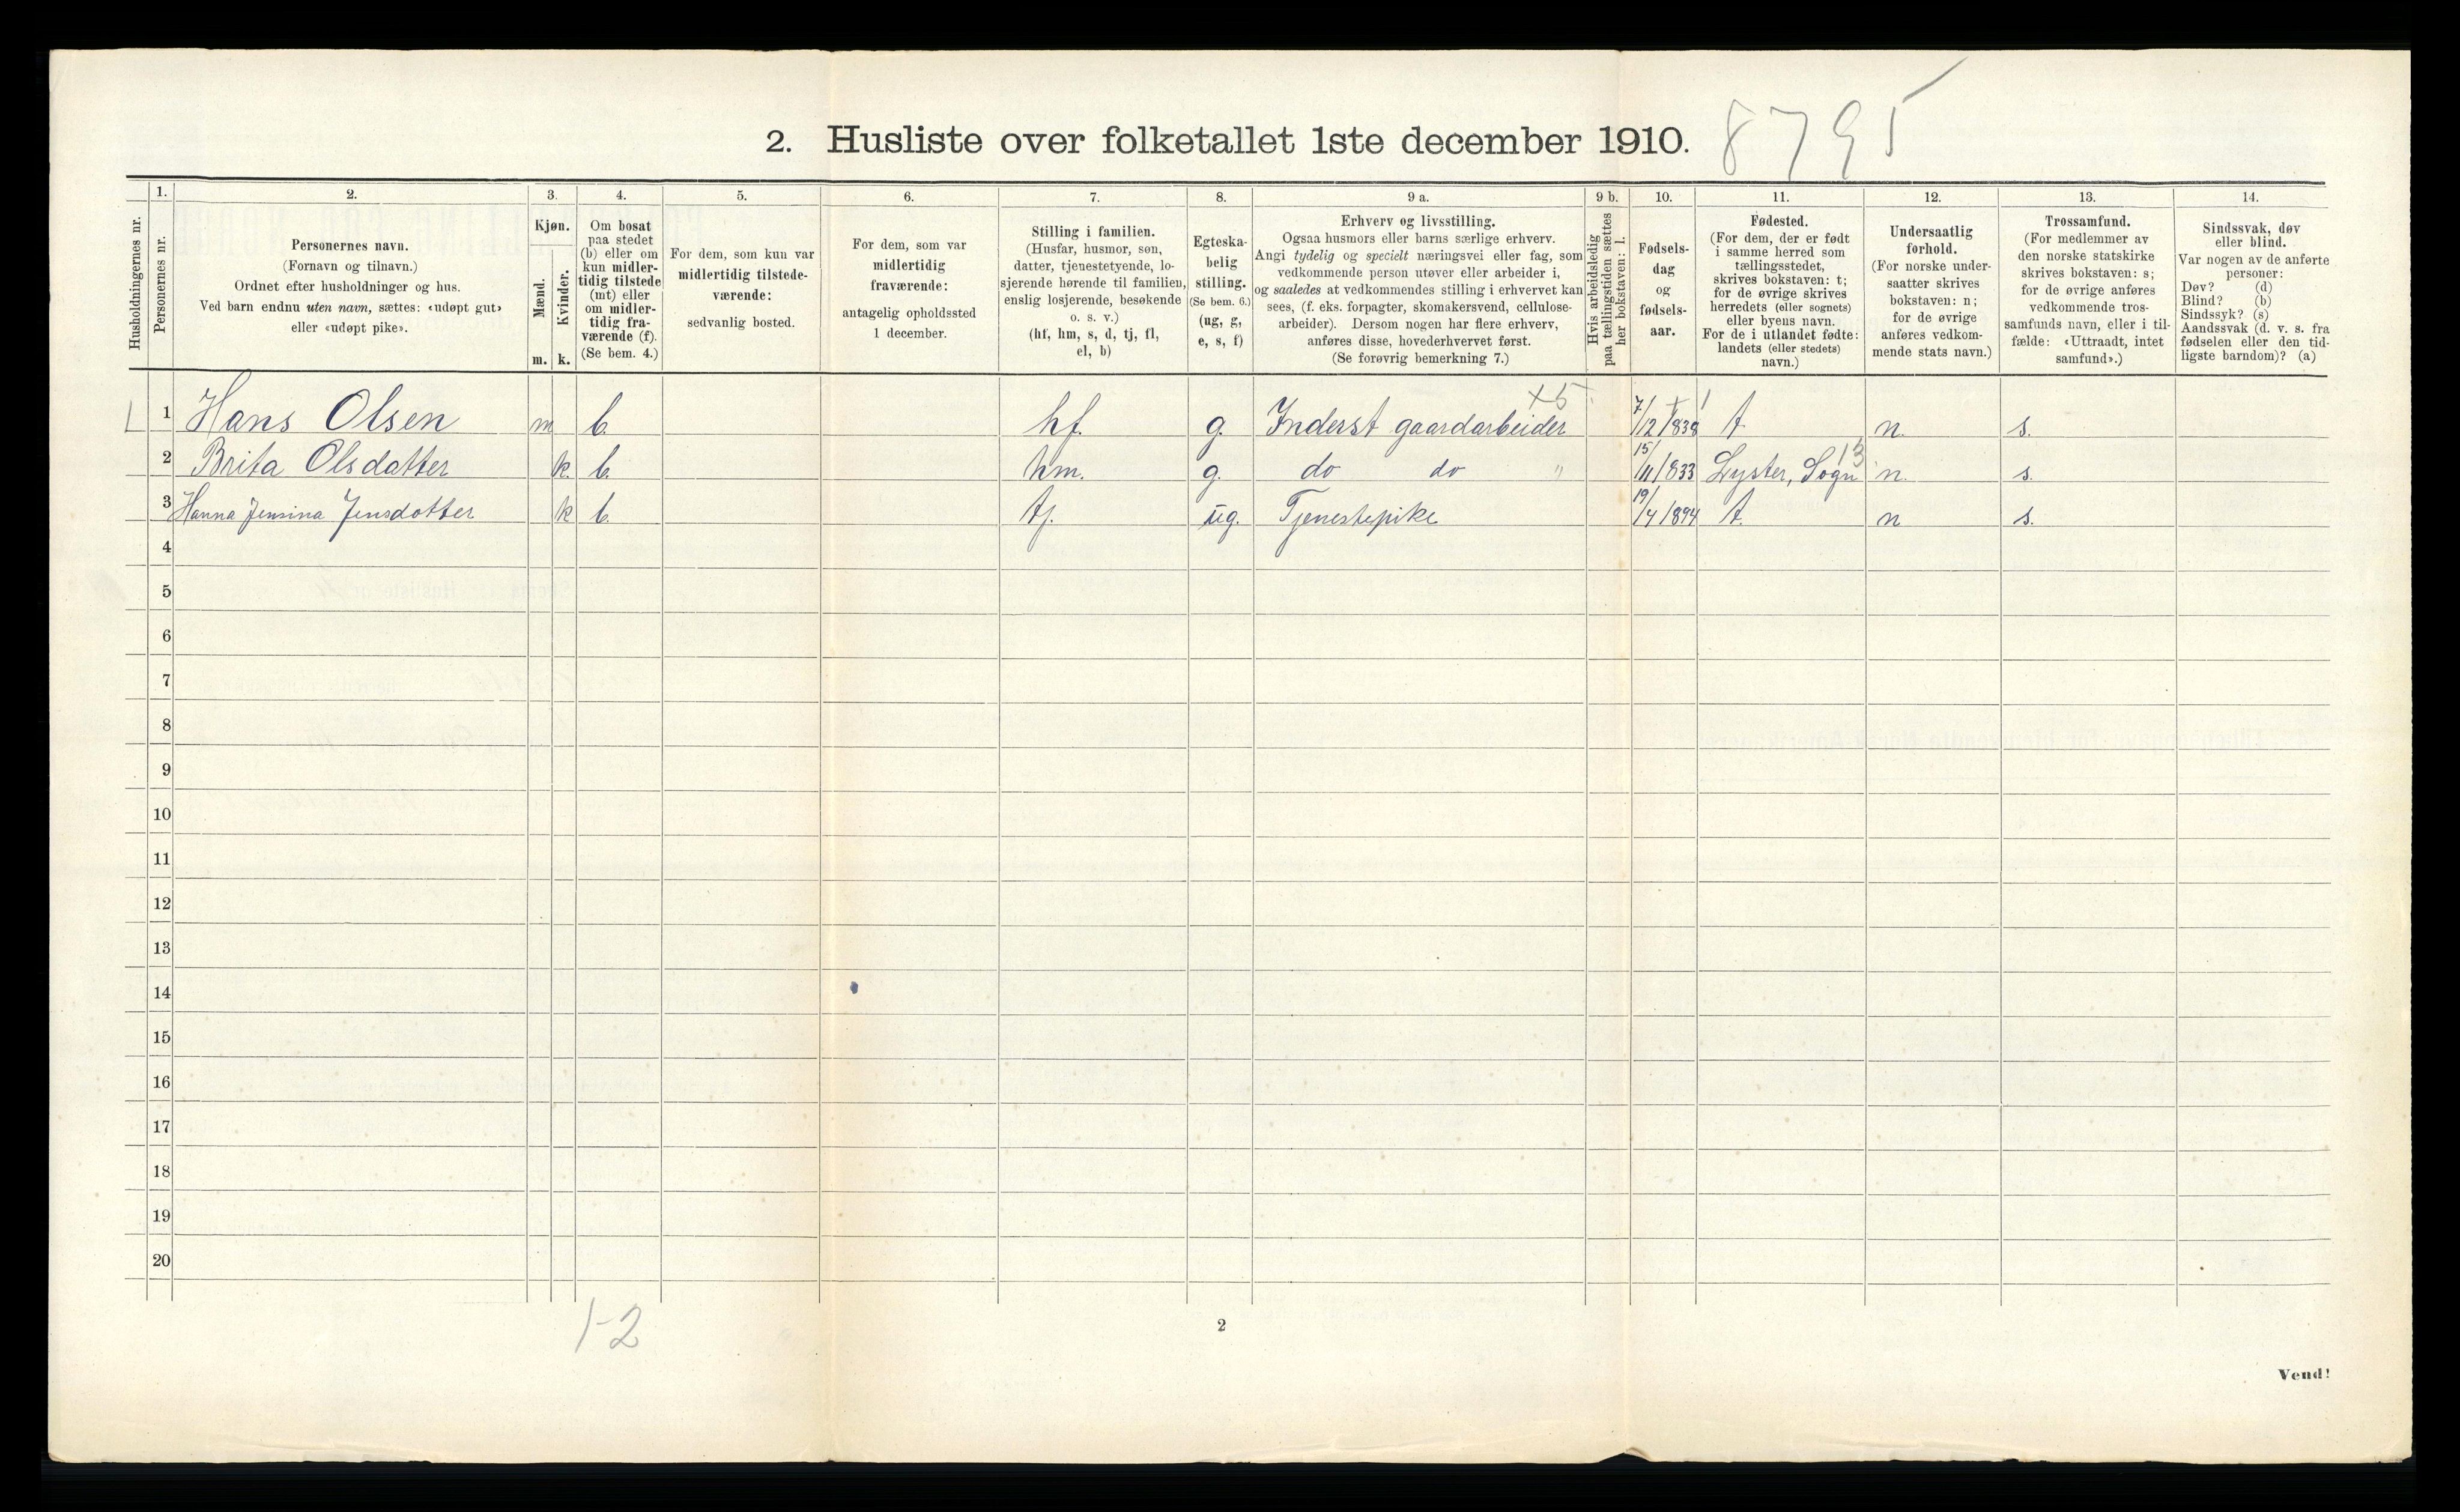 2. Husliste over folketallet 1ste december 1910. 8795
Husholdningernes nr.
1. Personernes nr.
2.
Personernes navn.
(Fornavn og tilnavn.)
Ordnet efter husholdninger og hus.
Ved barn endnu uten navn, sættes: «udøpt gut»
eller «udøpt pike».
3.
Kjøn.
Mænd. Kvinder.
m. k.
4.
Om bosat
paa stedet
(b) eller om
kun midler-
tidig tilstede
(mt) eller
om midler-
tidig fra-
værende (f).
(Se bem. 4.)
5.
For dem, som kun var
midlertidig tilstede-
værende:
sedvanlig bosted.
6.
For dem, som var
midlertidig
fraværende:
antagelig opholdssted
1 december.
7.
Stilling i familien.
(Husfar, husmor, søn,
datter, tjenestetyende, lo-
sjerende hørende til familien,
enslig losjerende, besøkende
o. s. v.)
(hf, hm, s, d, tj, fl,
el, b)
8.
Egteska-
belig
stilling.
(Se bem. 6.)
(ug, g,
e, s, f)
9 a.
Erhverv og livsstilling.
Ogsaa husmors eller barns særlige erhverv.
Angi tydelig og specielt næringsvei eller fag, som
vedkommende person utøver eller arbeider i,
og saaledes at vedkommendes stilling i erhvervet kan
sees, (f. eks. forpagter, skomakersvend, cellulose-
arbeider). Dersom nogen har flere erhverv,
anføres disse, hovederhvervet først.
(Se forøvrig bemerkning 7.)
9 b.
Hvis arbeidsledig
paa tællingstiden sættes
her bokstaven: l.
10.
Fødsels-
dag
og
fødsels-
aar.
11.
Fødested.
(For dem, der er født
i samme herred som
tællingsstedet,
skrives bokstaven: t;
for de øvrige skrives
herredets (eller sognets)
eller byens navn.
For de i utlandet fødte:
landets (eller stedets)
navn.)
12.
Undersaatlig
forhold.
(For norske under-
saatter skrives
bokstaven: n;
for de øvrige
anføres vedkom-
mende stats navn.)
13.
Trossamfund.
(For medlemmer av
den norske statskirke
skrives bokstaven: s;
for de øvrige anføres
vedkommende tros-
samfunds navn, eller i til-
fælde: «Uttraadt, intet
samfund».)
14.
Sindssvak, døv
eller blind.
Var nogen av de anførte
personer:
Døv? (d)
Blind? (b)
Sindssyk? (s)
Aandssvak (d. v. s. fra
fødselen eller den tid-
ligste barndom)? (a)
1 Hans Olsen m b. hf. g. Inderst gaardarbeider 7/12/838 t. n. s.
2 Brita Olsdatter k. b. hm. g. do do " 15/11/833 Lyster, Sogn 13 n. s.
3 Hanna Jensina Jensdotter k b. tj. ug. Tjenestepike 19/4/894 t. n s.
4
5
6
7
8
9
10
11
12
13
14
15
16
17
18
19
20
1-2
2
Vend!